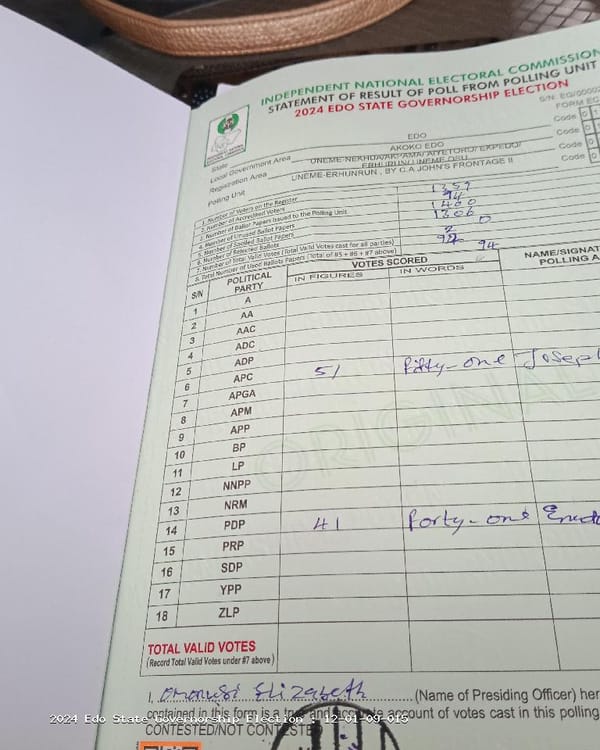 INDEPENDENT NATIONAL ELECTORAL COMMISSION
STATEMENT OF RESULT OF POLL FROM POLLING UNIT
2024 EDO STATE GOVERNORSHIP ELECTION
S/N: EG/0000
FORM EC
State EDO Code 0 1
Local Government Area AKOKO EDO Code 0
Registration Area UNEME-NEKHUA/AKPAMA/AIYETORO/EKPEDO/ Code 0
ERHURUN/UNEME OSU
Polling Unit UNEME-ERHUNRUN , BY C.A.JOHN'S FRONTAGE II Code 0
1. Number of Voters on the Register 1357
2. Number of Accredited Voters 94
3. Number of Ballot Papers Issued to the Polling Unit 1400
4. Number of Unused Ballot Papers 1306
5. Number of Spoiled Ballot Papers 0
6. Number of Rejected Ballots 2
7. Number of Total Valid Votes (Total Valid Votes cast for all parties)
8. Total Number of Used Ballots Papers (Total of #5 + #6 + #7 above) 94
S/N POLITICAL PARTY VOTES SCORED NAME/SIGNAT
IN FIGURES IN WORDS POLLING A
1 A
2 AA
3 AAC
4 ADC
5 ADP
6 APC 51 Fifty-one Joseph
7 APGA
8 APM
9 APP
10 BP
11 LP
12 NNPP
13 NRM
14 PDP 41 Forty-one
15 PRP
16 SDP
17 YPP
18 ZLP
ORIGINAL
TOTAL VALID VOTES
(Record Total Valid Votes under #7 above)
I, Omorusi Elizabeth (Name of Presiding Officer) her
contained in this form is a true and accurate account of votes cast in this polling
CONTESTED/NOT CONTESTED
2024 Edo State Governorship Election : 12-01-09-015